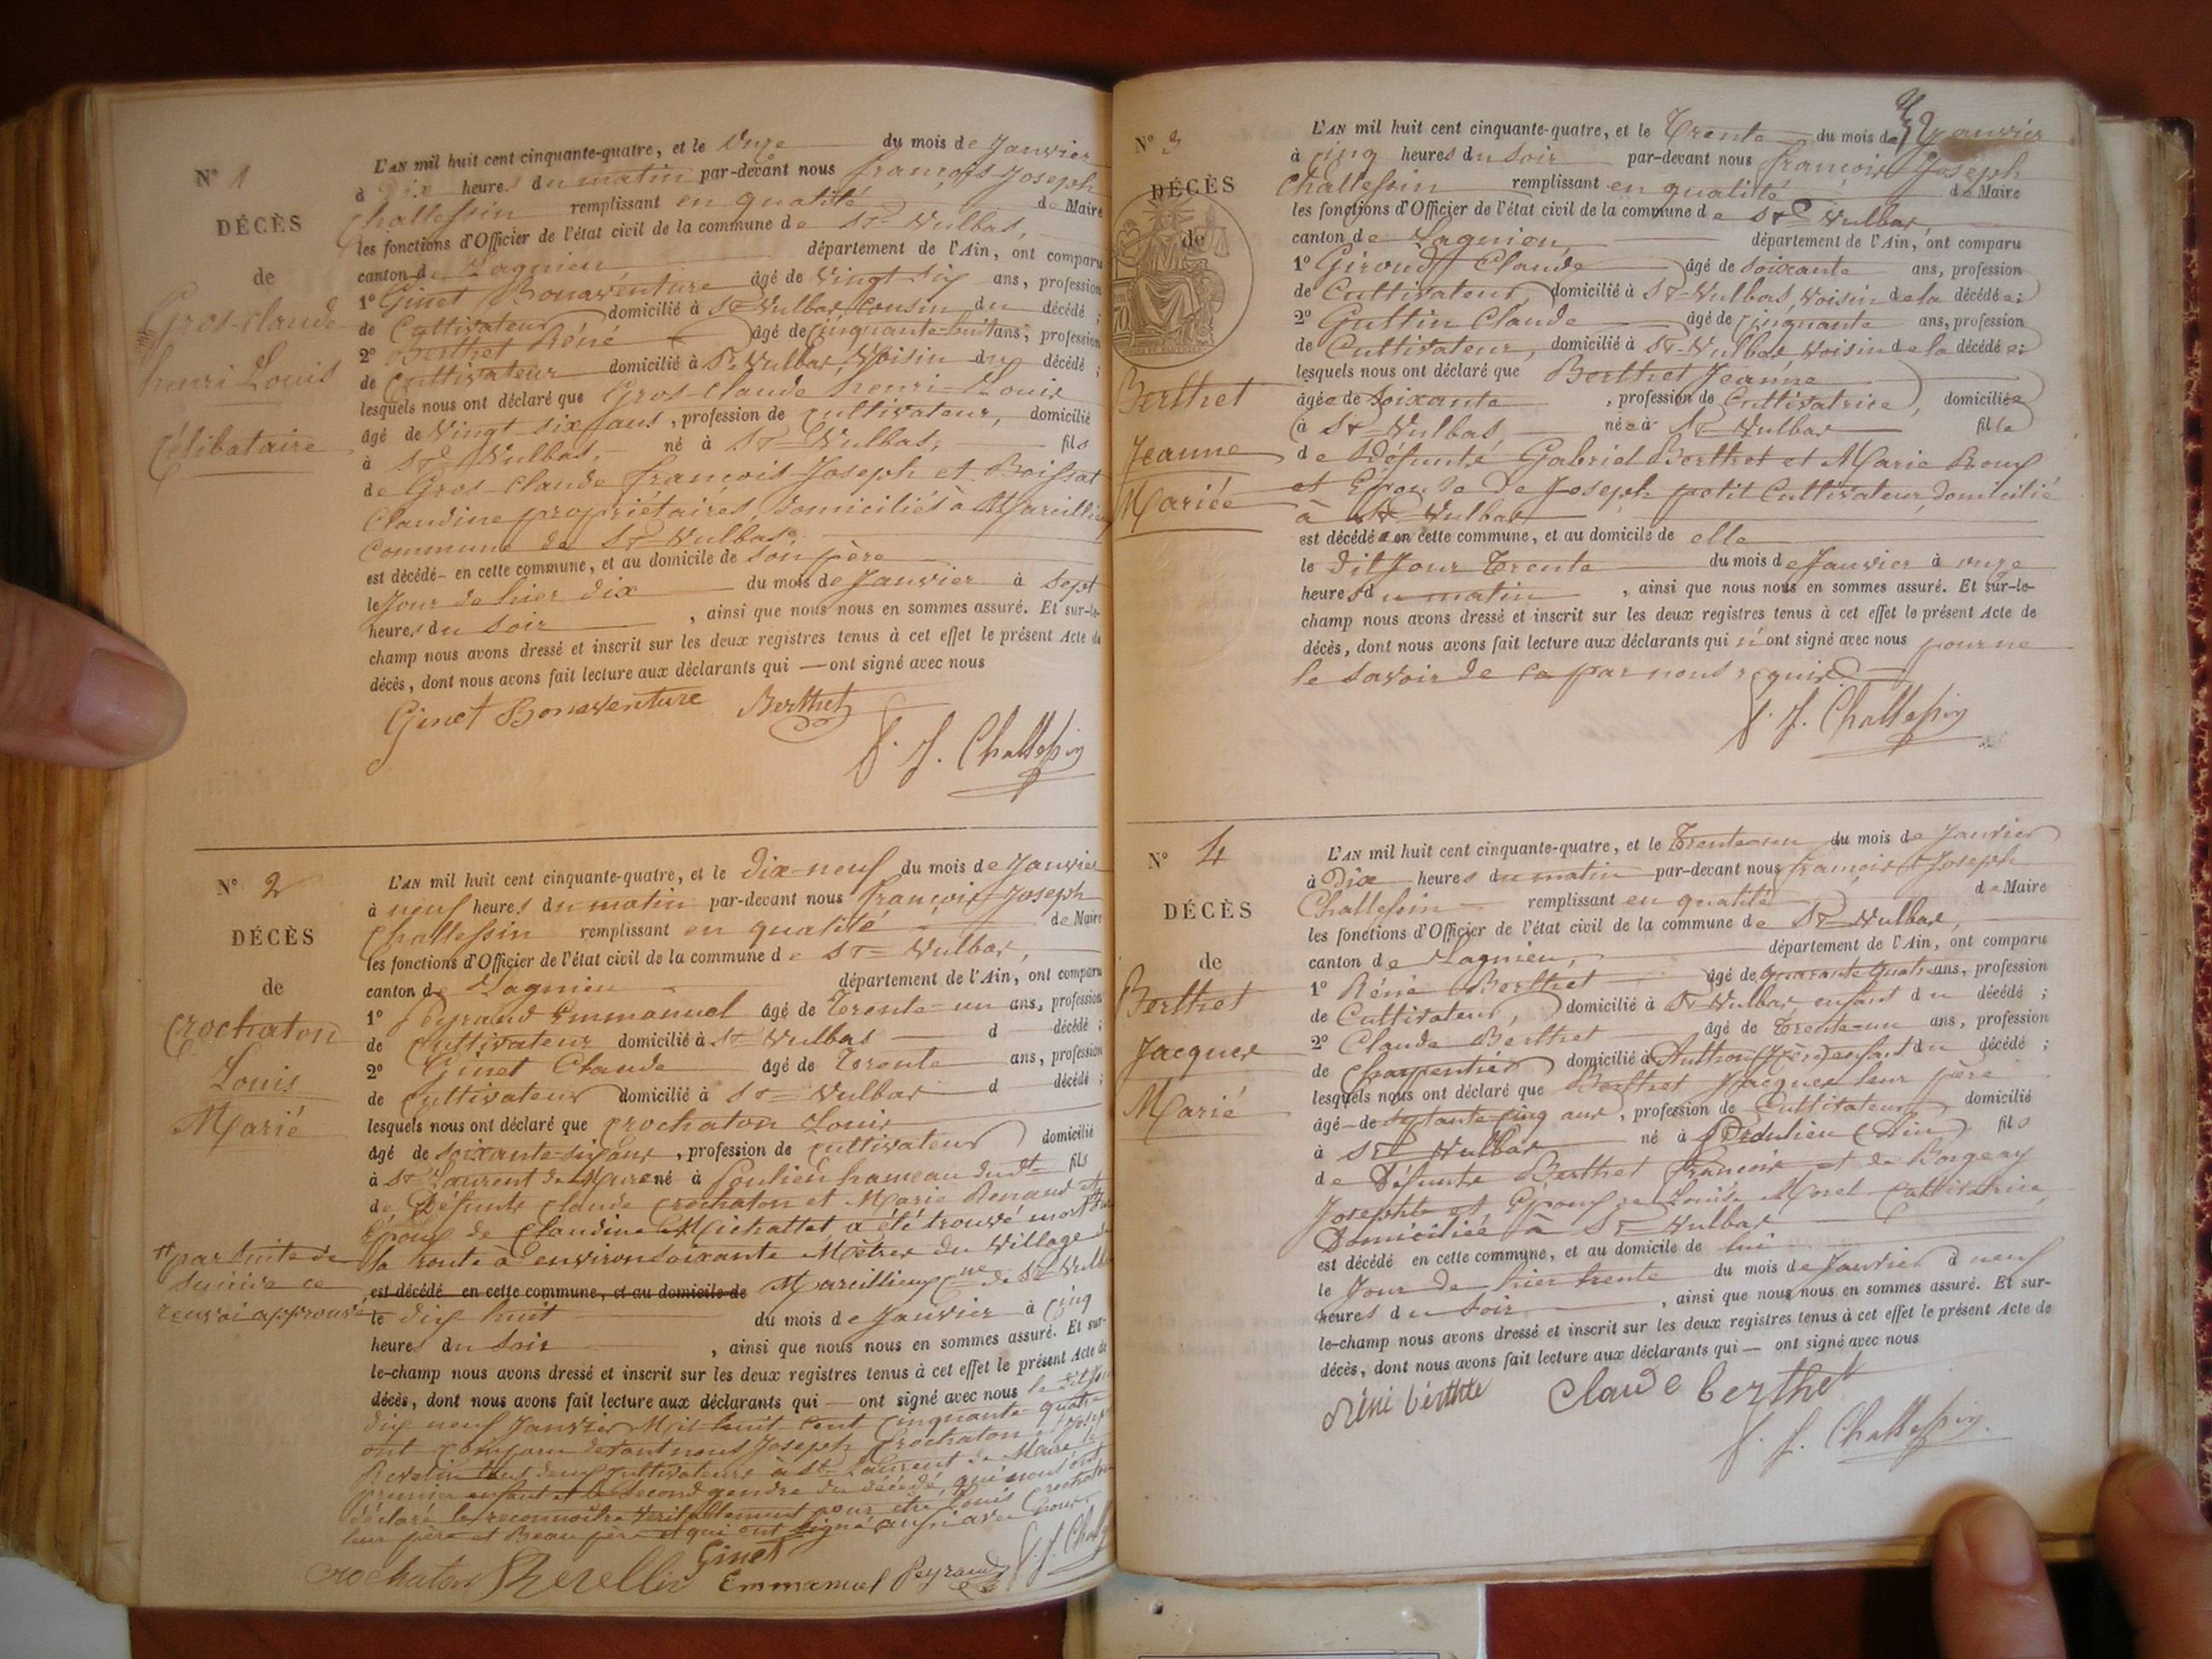 N° 1
DÉCÈS
de
Gros-claude
henri Louis
célibataire
L'AN mil huit cent cinquante-quatre, et le Onze du mois de Janvier
à Dix heures du matin par-devant nous françois Joseph
Challessin remplissant en qualité de Maire
les fonctions d'Officier de l'état civil de la commune de St Vulbas,
canton de Lagnieu département de l'Ain, ont comparu
1° Ginet Bonaventure âgé de Vingt six ans, profession
de Cultivateur domicilié à St Vulbas, Cousin du décédé ;
2° Berthet Réné âgé de Cinquante-huit ans, profession
de Cultivateur domicilié à St Vulbas, Voisin du décédé ;
lesquels nous ont déclaré que Gros-claude henri-Louis
âgé de Vingt-six ans, profession de cultivateur, domicilié
à St Vulbas, né à St Vulbas, fils
de Gros-claude françois Joseph et Boissat
Claudine propriétaires, domiciliés à Marcillieux
Commune de St Vulbas.
est décédé en cette commune, et au domicile de son père
le Jour de hier dix du mois de Janvier à Sept
heures du soir , ainsi que nous nous en sommes assuré. Et sur-le-
champ nous avons dressé et inscrit sur les deux registres tenus à cet effet le présent Acte de
décès, dont nous avons fait lecture aux déclarants qui — ont signé avec nous
Ginet Bonaventure Berthet
f. J. Challessin
N° 2
DÉCÈS
de
Crochaton
Louis
Marié
L'AN mil huit cent cinquante-quatre, et le Dix-neuf du mois de Janvier
à neuf heures du matin par-devant nous françois Joseph
Challessin remplissant en qualité de Maire
les fonctions d'Officier de l'état civil de la commune de St Vulbas,
canton de Lagnieu département de l'Ain, ont comparu
1° Peyraud Emmanuel âgé de Trente-un ans, profession
de Cultivateur domicilié à St Vulbas d décédé ;
2° Ginet Claude âgé de Trente ans, profession
de Cultivateur domicilié à St Vulbas d décédé ;
lesquels nous ont déclaré que Crochaton Louis
âgé de soixante-six ans, profession de cultivateur domicilié
à St Laurent de Mure né à Poulieu hameau dudt fils
de Défunts Claude Crochaton et Marie Renaud et
Époux de Claudine Michallet a été trouvé mort sur
la route à environ soixante Mètres du Village de
est décédé en cette commune, et au domicile de Marcillieux Cne de St Vulbas
par suite de
suicide ce
renvoi approuvé
le dix huit du mois de Janvier à Cinq
heures du soir , ainsi que nous nous en sommes assuré. Et sur-
le-champ nous avons dressé et inscrit sur les deux registres tenus à cet effet le présent Acte de
décès, dont nous avons fait lecture aux déclarants qui — ont signé avec nous le dit jour
dix neuf Janvier Mil huit Cent Cinquante quatre
ont comparu devant nous Joseph Crochaton, Joseph
Revelin tous deux Cultivateurs à St Laurent de Mure le
premier enfant et le second gendre du décédé, qui nous ont
déclaré le reconnoitre véritablement pour être Louis Crochaton
leur père et Beau père et qui ont signé aussi avec nous
Crochaton Revellin Ginet
Emmanuel Peyraud f. J. Chall
N° 3
DÉCÈS
de
Berthet
Jeanne
Mariée
L'AN mil huit cent cinquante-quatre, et le Trente du mois de Janvier
à Cinq heures du Soir par-devant nous françois Joseph
Challessin remplissant en qualité de Maire
les fonctions d'Officier de l'état civil de la commune de St Vulbas,
canton de Lagnieu, département de l'Ain, ont comparu
1° Giroud Claude âgé de Soixante ans, profession
de Cultivateur, domicilié à St-Vulbas, Voisin de la décédée ;
2° Guttin Claude âgé de Cinquante ans, profession
de Cultivateur, domicilié à St-Vulbas Voisin de la décédée ;
lesquels nous ont déclaré que Berthet Jeanne
âgée de Soixante , profession de Cultivatrice, domiciliée
à St-Vulbas, née à St Vulbas fille
de Défunts Gabriel Berthet et Marie Roux
et Épouse de Joseph petit Cultivateur, domicilié
à St Vulbas
est décédée en cette commune, et au domicile de elle
le dit Jour Trente du mois de Janvier à onze
heures du matin , ainsi que nous nous en sommes assuré. Et sur-le-
champ nous avons dressé et inscrit sur les deux registres tenus à cet effet le présent Acte de
décès, dont nous avons fait lecture aux déclarants qui n'ont signé avec nous pour ne
le savoir de ce par nous requis.
f. J. Challessin
N° 4
DÉCÈS
de
Berthet
Jacques
Marié
L'AN mil huit cent cinquante-quatre, et le Trente-un du mois de Janvier
à Dix heures du matin par-devant nous françois Joseph
Challessin remplissant en qualité de Maire
les fonctions d'Officier de l'état civil de la commune de St Vulbas,
canton de Lagnieu, département de l'Ain, ont comparu
1° Réné Berthet âgé de quarante quatre ans, profession
de Cultivateur, domicilié à St Vulbas, enfant du décédé ;
2° Claude Berthet âgé de Trente-un ans, profession
de Charpentier domicilié à Anthon (Isère) enfant du décédé ;
lesquels nous ont déclaré que Berthet Jacques leur père
âgé de septante-cinq ans, profession de Cultivateur, domicilié
à St Vulbas né à (Ain) fils
de Défunts Berthet François et de Borgeay
Josephte et Époux de Louise Morel Cultivatrice,
Domiciliée à St Vulbas
est décédé en cette commune, et au domicile de lui
le Jour de hier trente du mois de Janvier à neuf
heures du Soir , ainsi que nous nous en sommes assuré. Et sur-
le-champ nous avons dressé et inscrit sur les deux registres tenus à cet effet le présent Acte de
décès, dont nous avons fait lecture aux déclarants qui — ont signé avec nous
Réné berthte Claude berthet
f. J. Challessin.